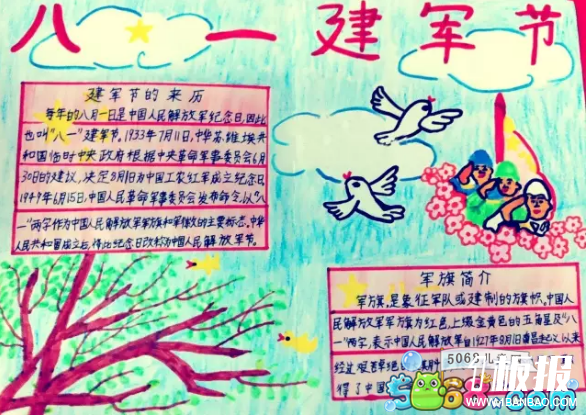 八一建军节
建军节的来历
每年的八月一日是中国人民解放军纪念日,因此
也叫"八一"建军节。1933年7月11日,中华苏维埃共
和国临时中央政府根据中央革命军事委员会6月
30日的建议,决定8月1日为中国工农红军成立纪念日。
1949年6月15日,中国人民革命军事委员会发布命令,以"八
一"两字作为中国人民解放军军旗和军徽的主要标志。中华
人民共和国成立后,将此纪念日改称为中国人民解放军建军节。
军旗简介
军旗,是象征军队或建制的旗帜。中国人
民解放军军旗为红色,上缀金黄色的五角星及"八
一"两字,表示中国人民解放军自1927年8月1日南昌起义以来
经过
得了中国
5068儿
板报
WWW.1BANBAO.COM